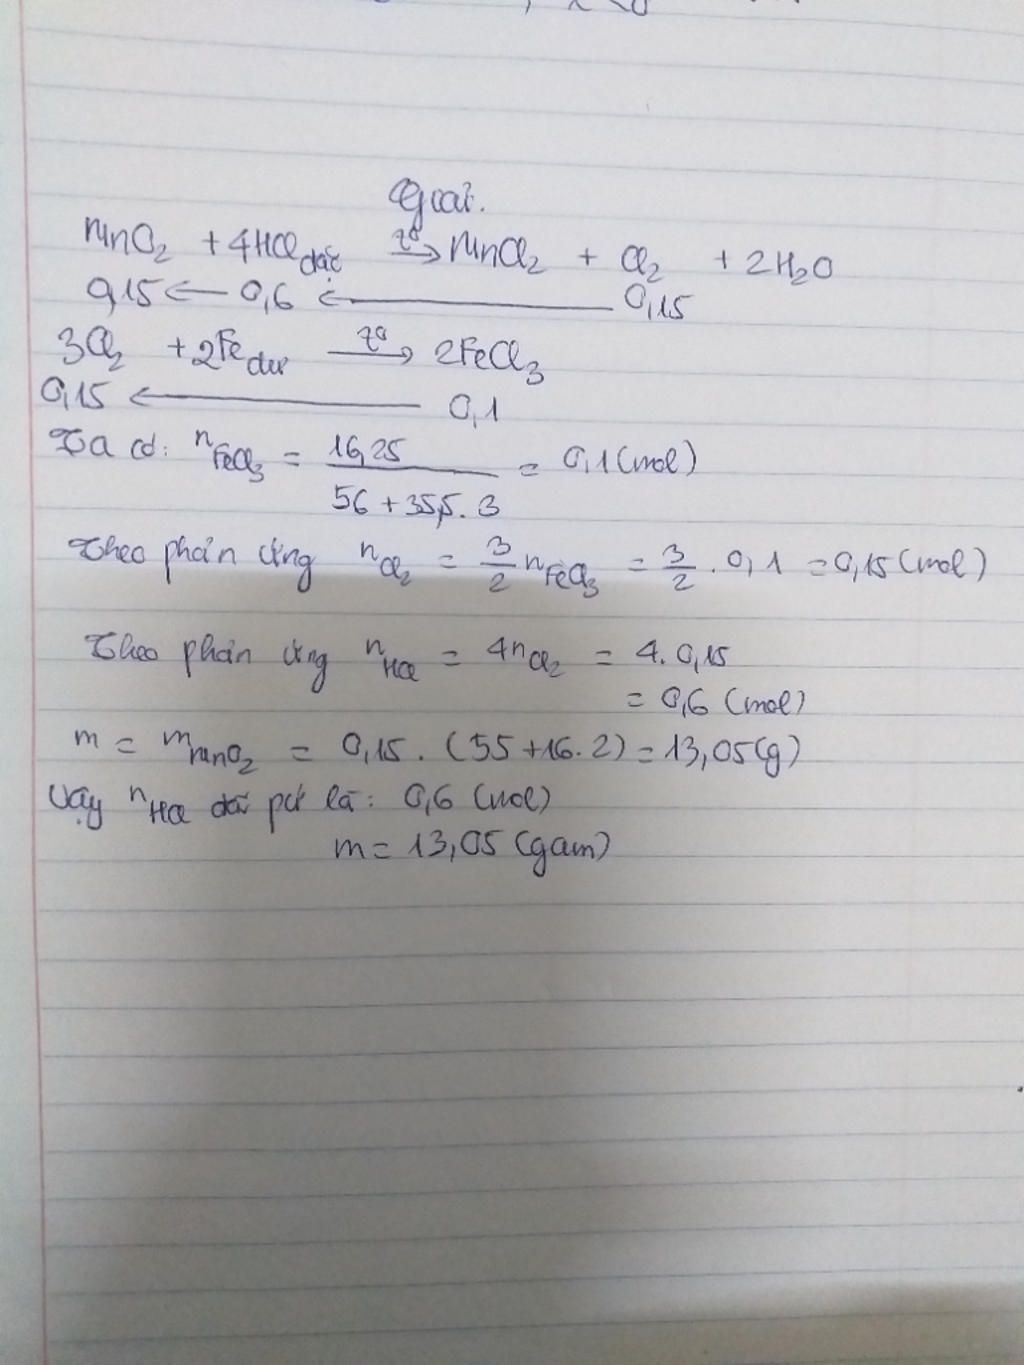 Giải.
MnO₂ + 4HCl đặc t° → MnCl₂ + Cl₂ + 2H₂O
0,15 ← 0,6 ← 0,15
3Cl₂ + 2Fe dư t° → 2FeCl₃
0,15 ← 0,1
Ta có: n FeCl₃ = 16,25 / (56 + 35,5. 3) = 0,1 (mol)
Theo phản ứng n Cl₂ = 3/2 n FeCl₃ = 3/2 . 0,1 = 0,15 (mol)
Theo phản ứng n HCl = 4n Cl₂ = 4. 0,15
= 0,6 (mol)
m = m MnO₂ = 0,15 . (55 + 16. 2) = 13,05 (g)
Vậy n HCl đã pứ là: 0,6 (mol)
m = 13,05 (gam)